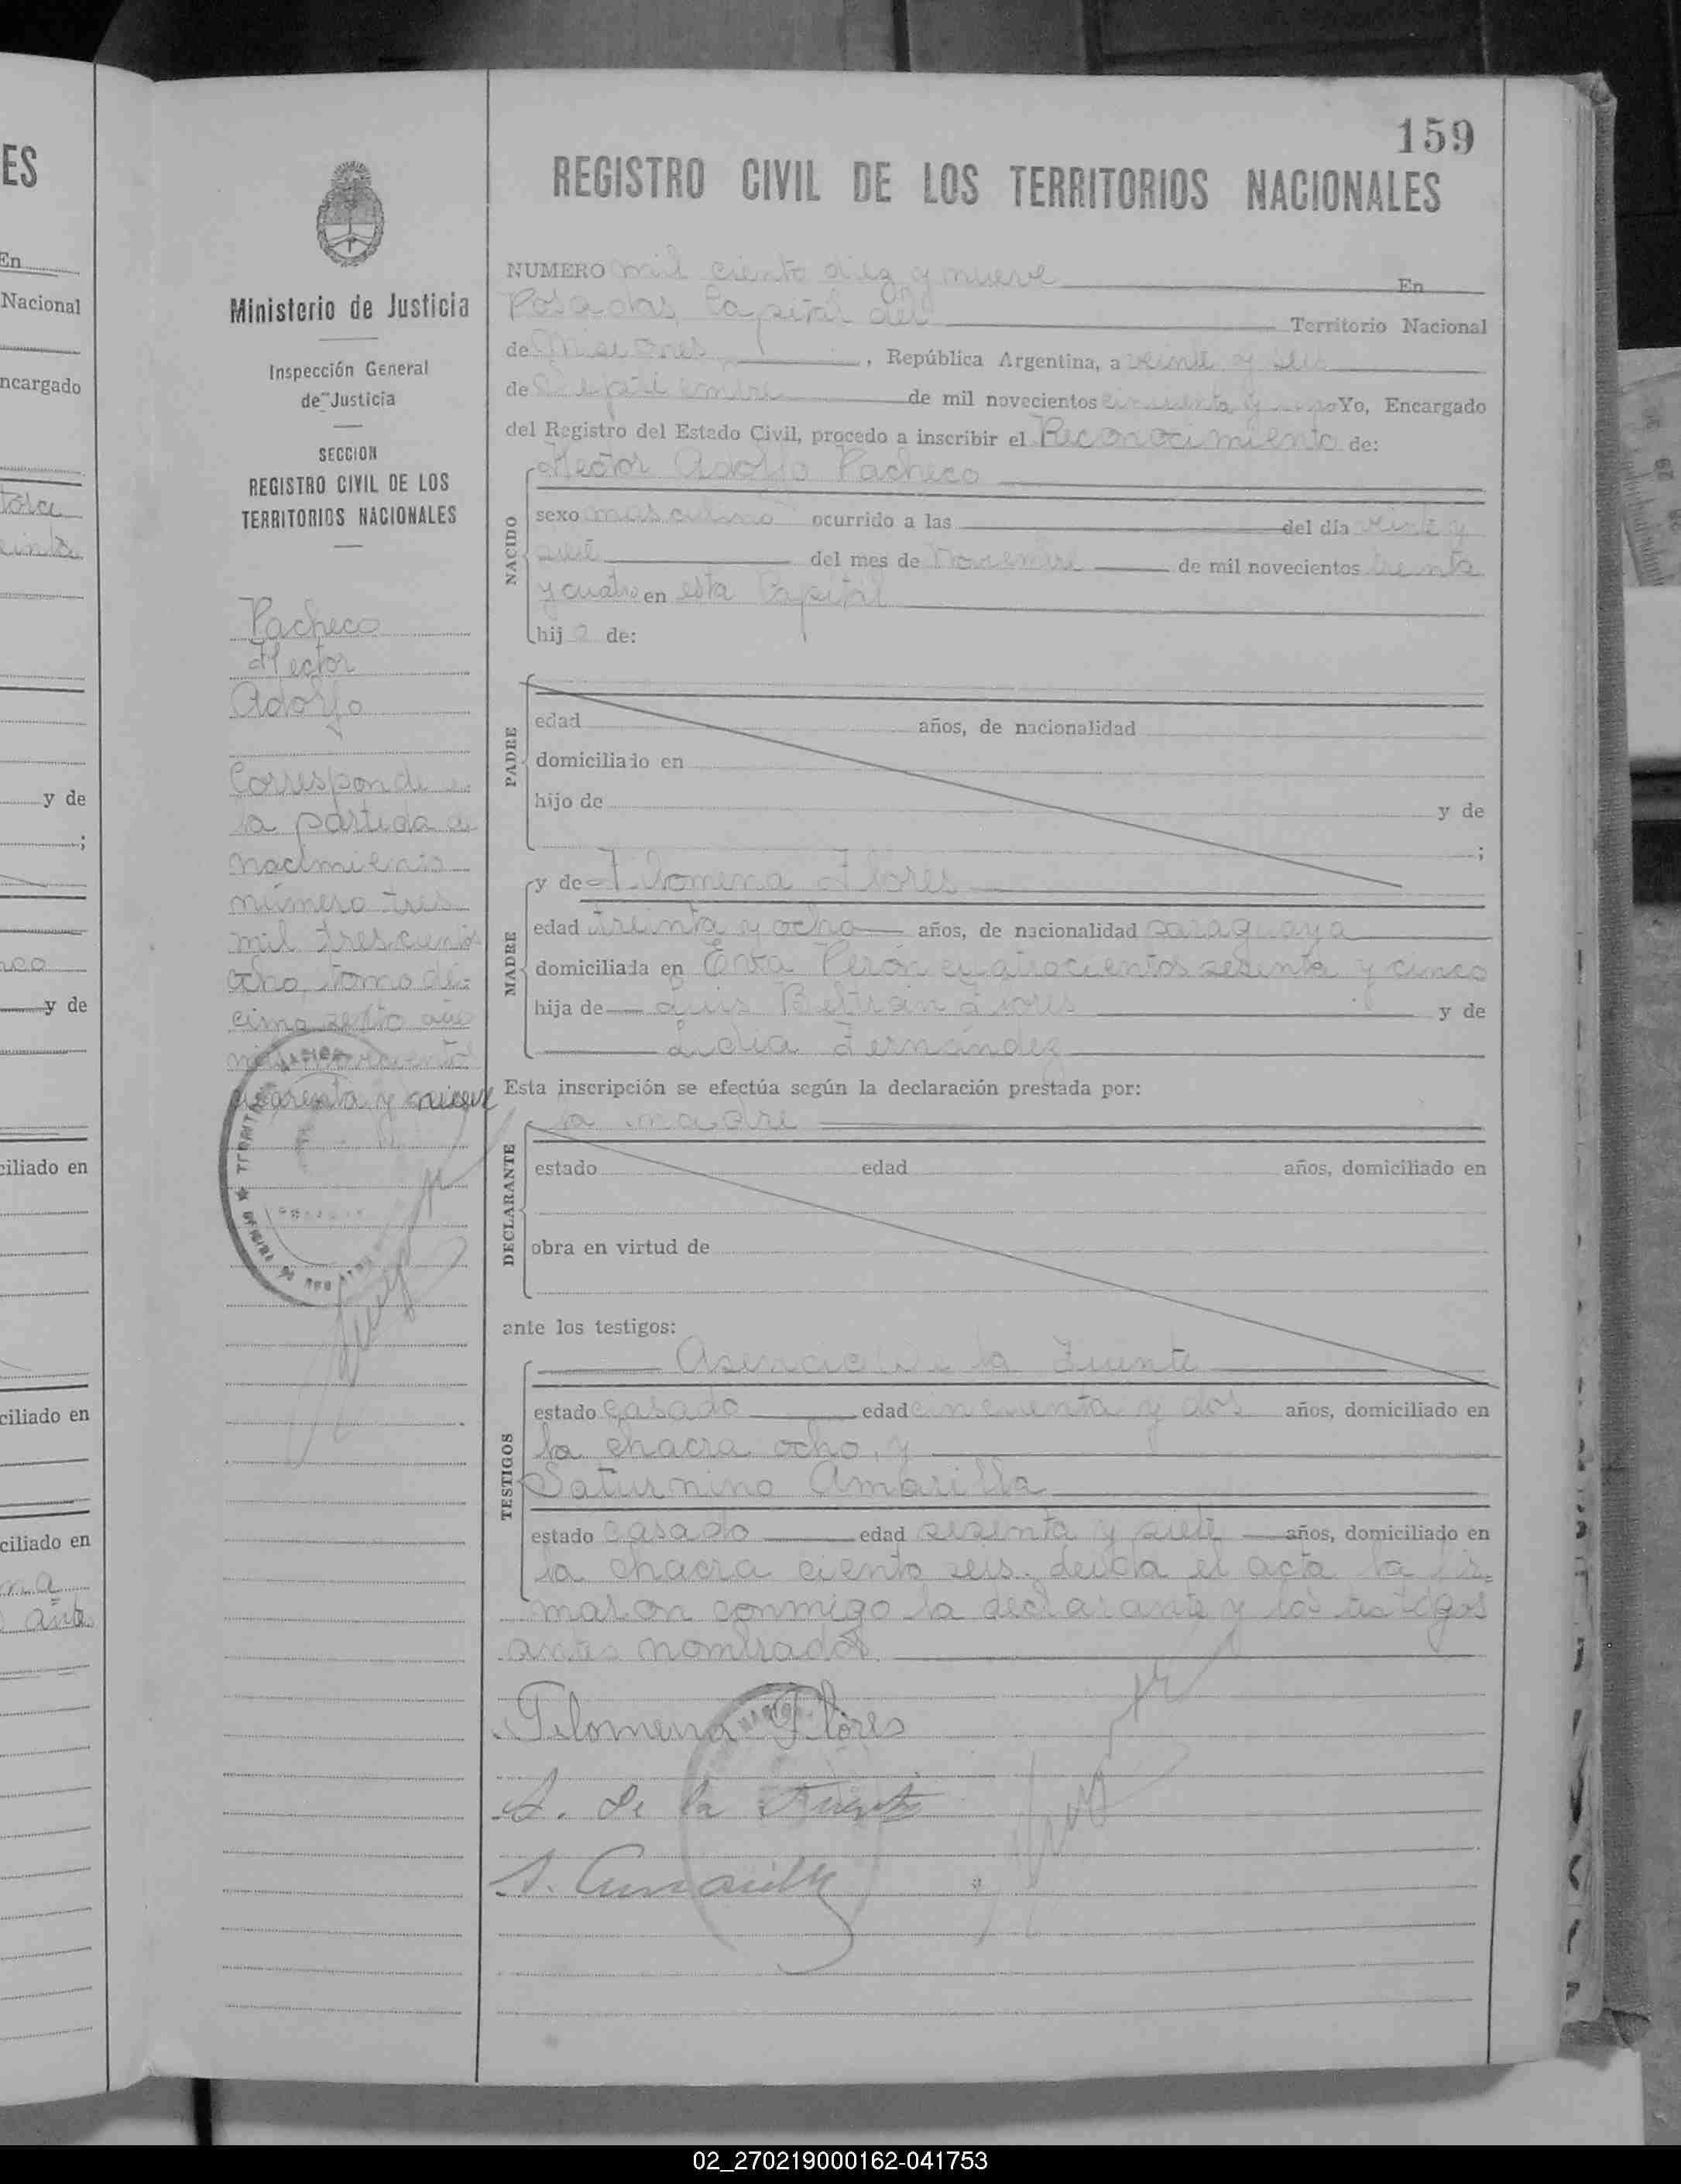 159
REGISTRO CIVIL DE LOS TERRITORIOS NACIONALES
NUMERO mil ciento diez y nueve En
Posadas Capital del Territorio Nacional
de Misiones, República Argentina, a veinte y seis
de Septiembre de mil novecientos cincuenta y uno Yo, Encargado
del Registro del Estado Civil, procedo a inscribir el Reconocimiento de:
Hector Adolfo Pacheco
NACIDO
sexo masculino ocurrido a las del día veinte y
del mes de Noviembre de mil novecientos treinta
y cuatro en esta Capital
hijo de:
PADRE
edad años, de nacionalidad
domiciliado en
hijo de y de
;
MADRE
y de Filomena Flores
edad treinta y ocho años, de nacionalidad paraguaya
domiciliada en Eva Perón cuatrocientos sesenta y cinco
hija de Luis Beltrán Flores y de
Lidia Fernández
Esta inscripción se efectúa según la declaración prestada por:
la madre
DECLARANTE
estado edad años, domiciliado en
obra en virtud de
ante los testigos:
Asencio De la Fuente
TESTIGOS
estado casado edad cincuenta y dos años, domiciliado en
la chacra ocho, y
Saturnino Amarilla
estado casado edad sesenta y siete años, domiciliado en
la chacra ciento seis. Leida el acta la fir=
maron conmigo la declarante y los testigos
antes nombrados.
Filomena Flores
A. de la Fuente
S. Amarilla
Ministerio de Justicia
Inspección General
de Justicia
SECCION
REGISTRO CIVIL DE LOS
TERRITORIOS NACIONALES
Pacheco
Hector
Adolfo
Corresponde a
la partida de
nacimiento
número tres
mil trescientos
ocho, tomo dé=
cimo sexto año
mil novecientos
cuarenta y nueve
ES
En
Nacional
ncargado
y de
;
y de
ciliado en
ciliado en
ciliado en
02_270219000162-041753